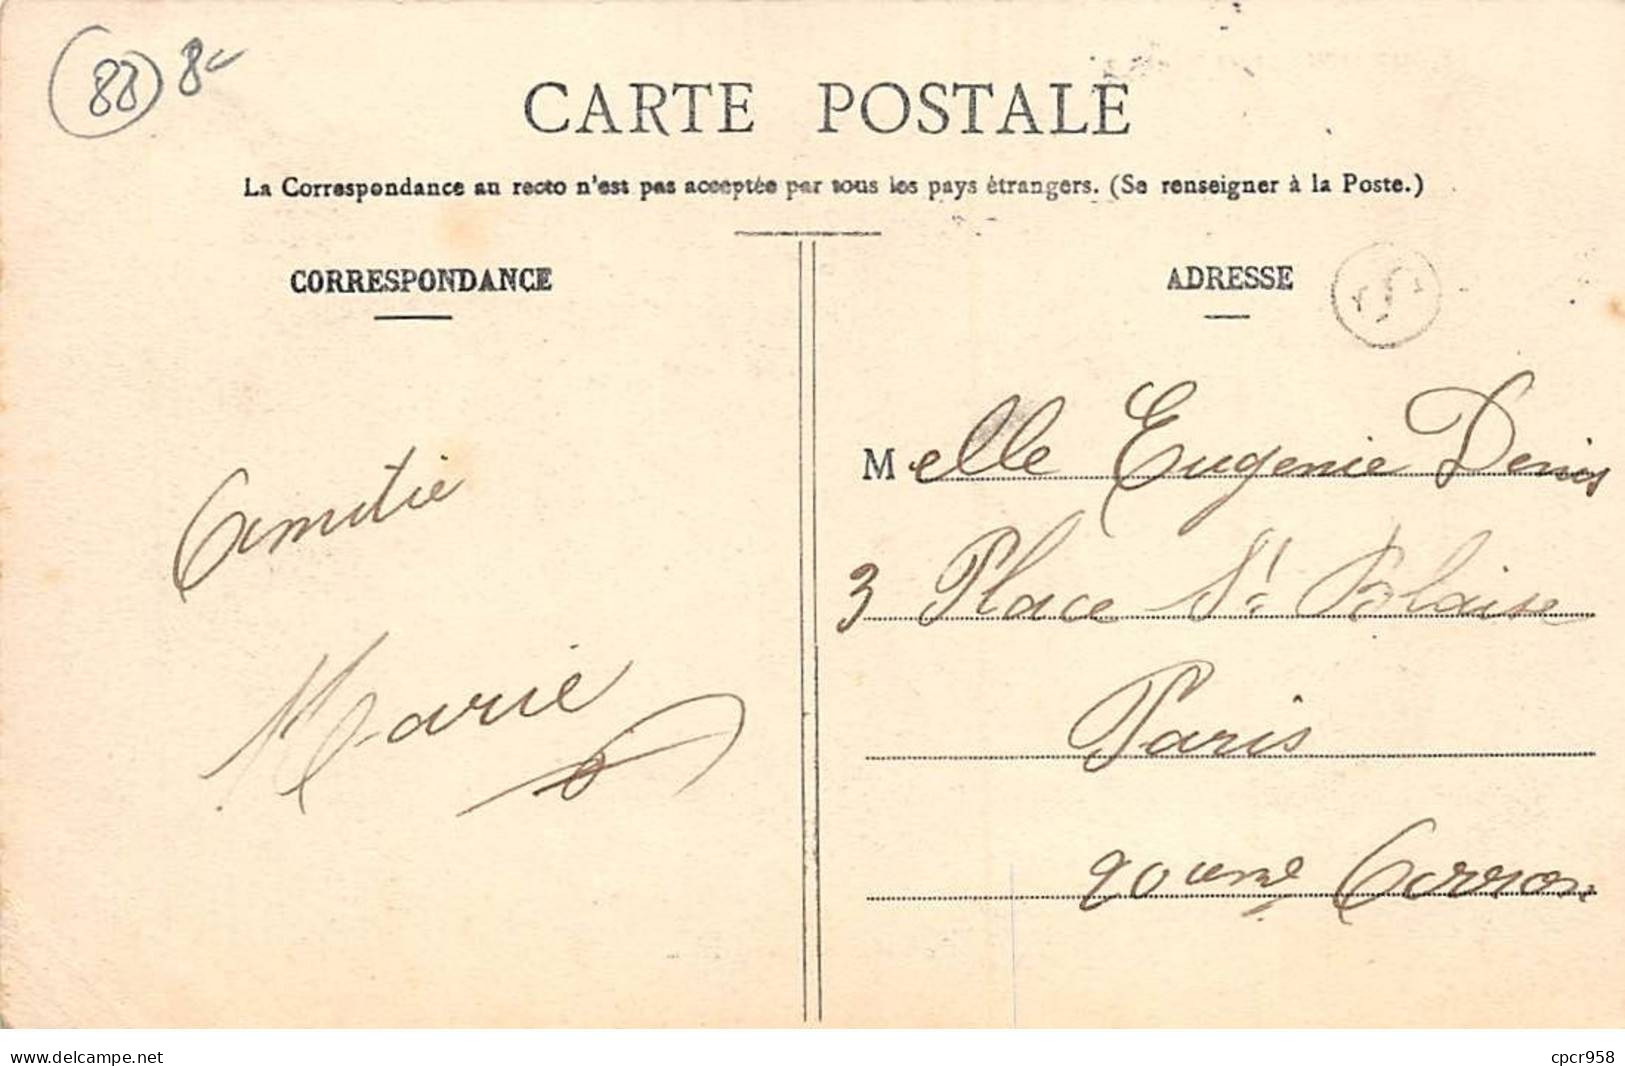 88 8-
CARTE POSTALE
La Correspondance au recto n'est pas acceptée par tous les pays étrangers. (Se renseigner à la Poste.)
CORRESPONDANCE
ADRESSE
Melle Eugenie Denis
3 Place St Blaise
Paris
20eme Arron
Amitie
Marie
www.delcampe.net
cpcr958